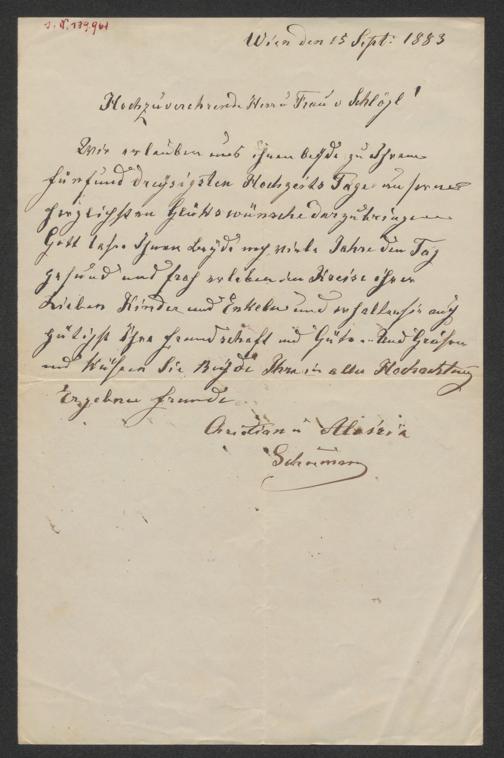 J. N. 139,961
Wien den 15 Sept: 1883
Hochzuverehrende Herr u Frau v Schlögl!
Wir erlauben uns ihnen beyde zu Ihrem
fünfund dreysigsten Hochzeits Tage unsere
herzlichsten Glükswünsche darzubringen
Gott lasse Ihnen Beyde noch viele Jahre den Tag
gesund und froh erleben im Kreise ihrer
Lieben Kinder und Enkeln und erhalten sie auch
gütigst Ihre freundschaft und Güte Und Grüßen
und Küßen Sie Beyde Ihre in aller Hochachtung
Ergebene freunde
Christian u Aloisia